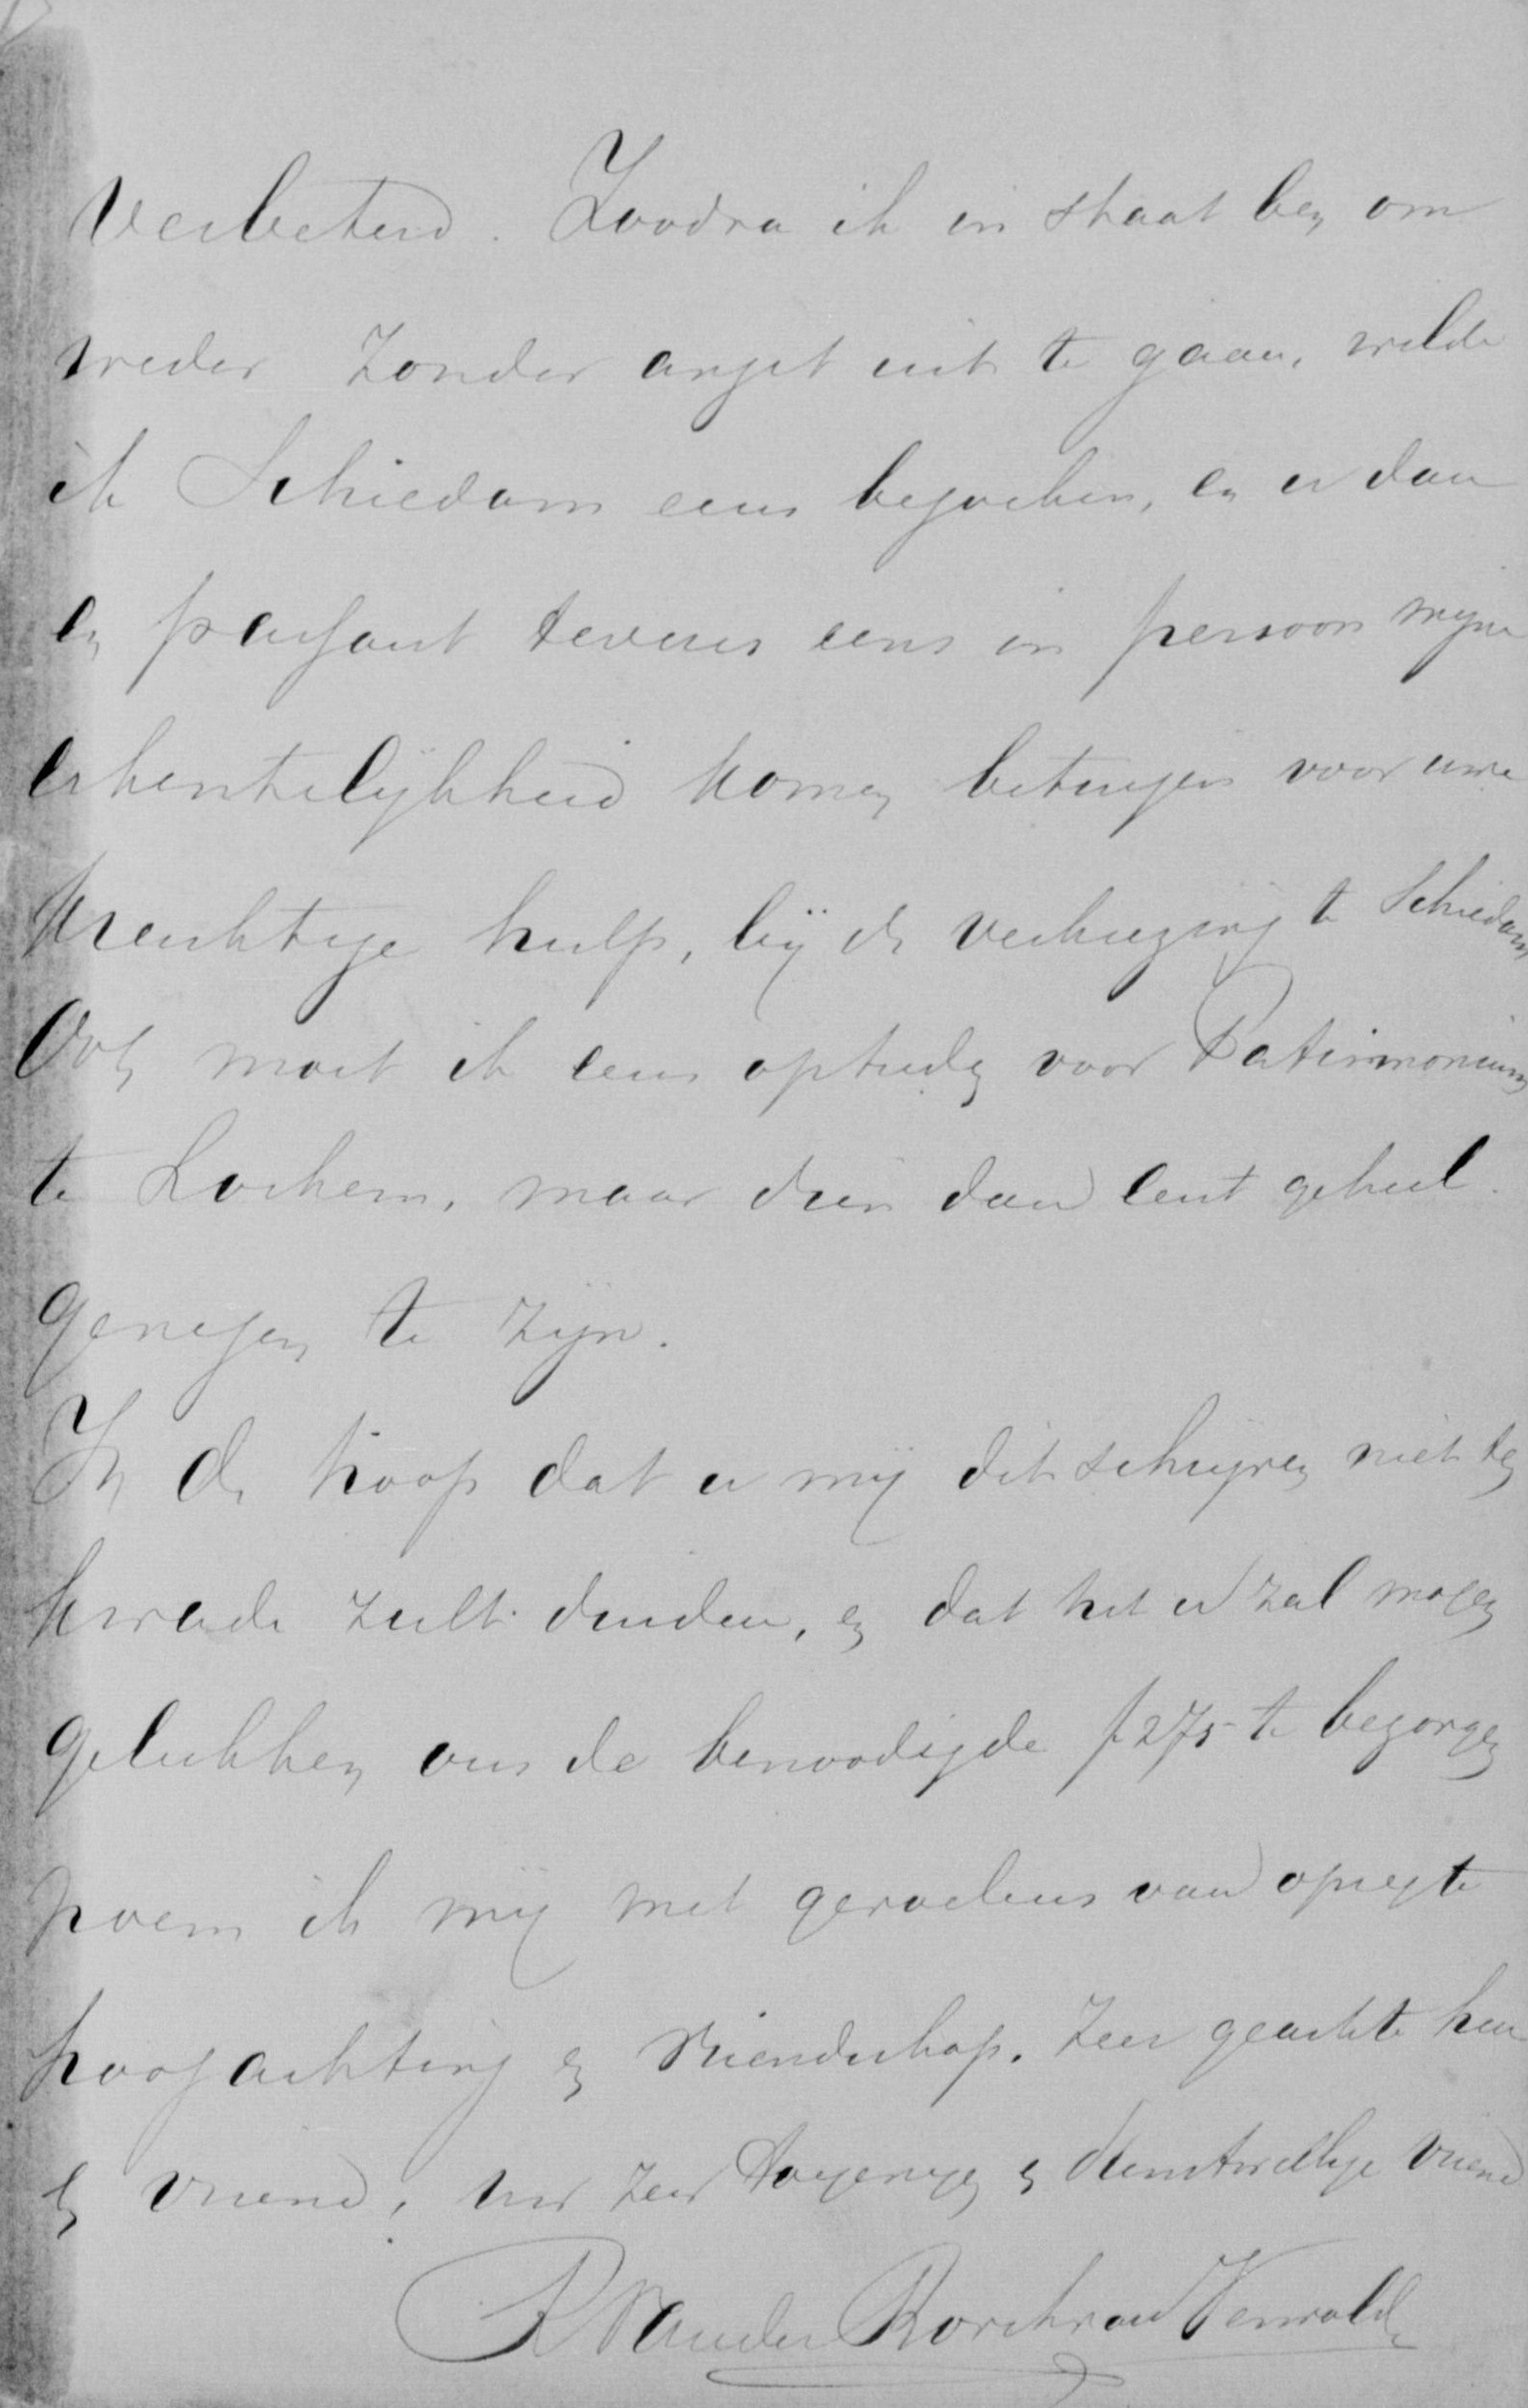 verbeterd. Zoodra ik in staat ben om
weder zonder angst uit te gaan, wilde
ik Schiedam eens bezoeken, en u dan
en passant tevens eens in persoon mijne
erkentelijkheid komen betuigen voor uwe
krachtige hulp, bij de verkiezing te Schiedam
Ook moet ik eens optreden voor Patrimonium
te Lochem, maar dien dan eerst geheel
genezen te zijn.
In de hoop dat u mij dit schrijven niet ten
kwade zult duiden, en dat het u zal mogen
gelukken ons de benoodigde f 275 te bezorgen
noem ik mij met gevoelens van opregte
hoogachting en vriendschap. Zeer geachte heer
en vriend, uw zeer toegenegen en dienstwillige vriend
R van der Borch van Verwolde